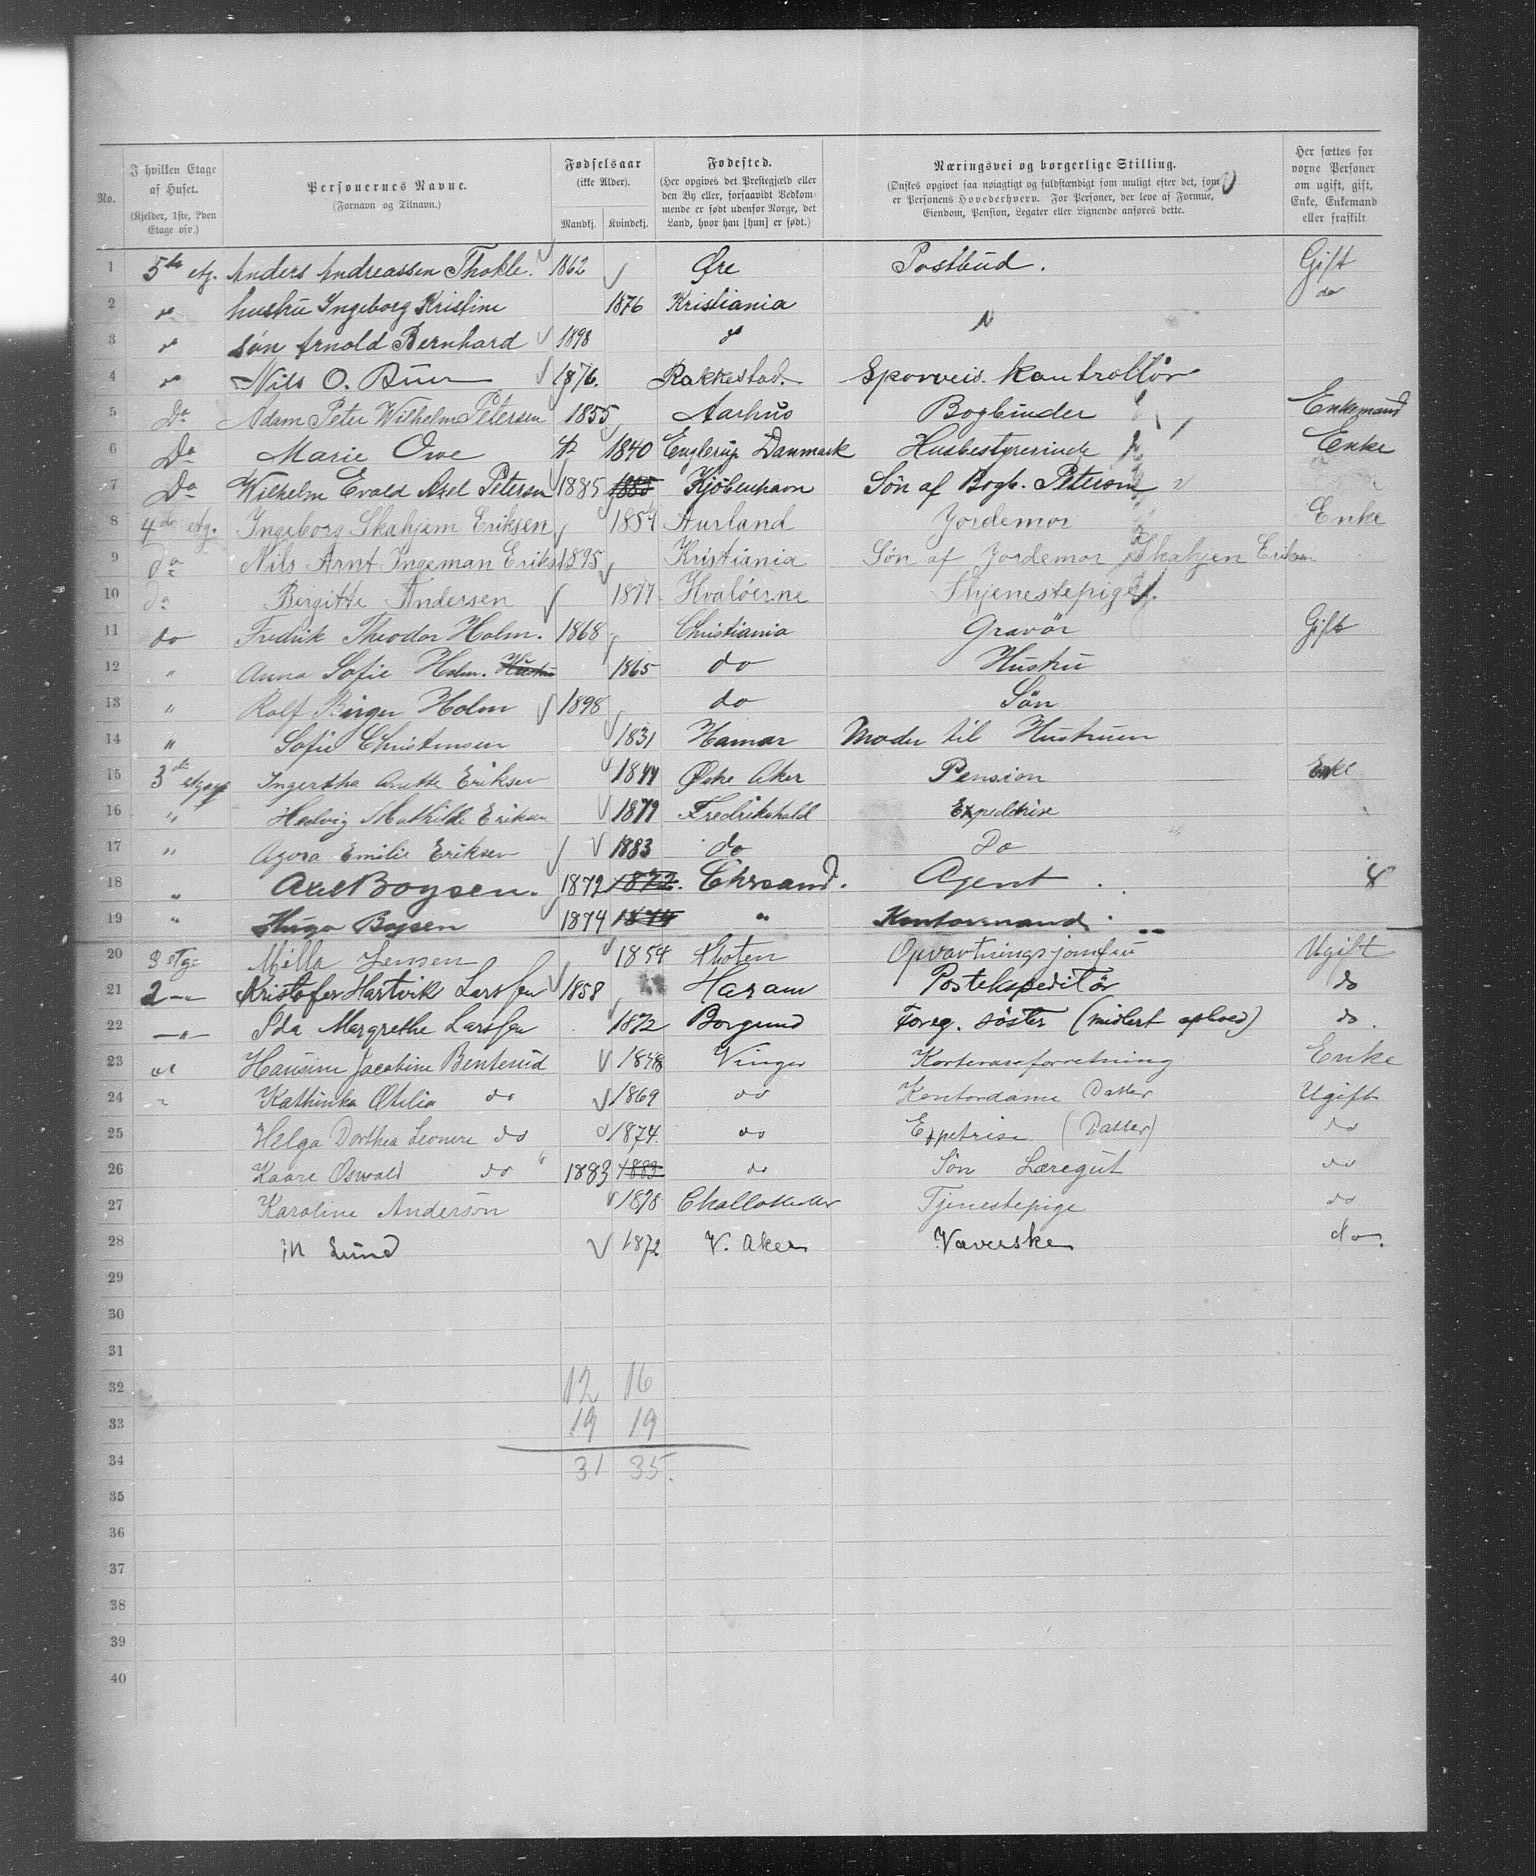 No.
I hvilken Etage af Huset. (Kjelder, 1ste, 2den Etage osv.)
Personernes Navne. (Fornavn og Tilnavn.)
Fødselsaar (ikke Alder). Mandkj. Kvindekj.
Fødested. (Her opgives det Prestegjæld eller den By eller, forsaavidt Vedkommende er født udenfor Norge, det Land, hvor han [hun] er født.)
Næringsvei og borgerlige Stilling. (Ønskes opgivet saa nøiagtigt og fuldstændigt som muligt efter det, som er Personens Hovederhverv. For Personer, der leve af Formue, Eiendom, Pension, Legater eller Lignende anføres dette.
Her sættes for voxne Personer om ugift, gift, Enke, Enkemand eller fraskilt
1 5te etg. Anders Andreassen Thokle. 1862 Øre Postbud. Gift
2 do hustru Ingeborg Kristine 1876 Kristiania do
3 do søn Arnold Bernhard 1898 do
4 do Nils O. Buer 1876. Rakkestad. Sporveis. kontrollör
5 Do Adam Peter Wilhelm Petersen 1855 Aarhus Bogbinder Enkemand
6 Do Marie Owe 1840 Englerup Danmark Husbestyrerinde Enke
7 Do Wilhelm Evald Axel Petersen 1885 1885 Kjöbenhavn Søn af Bogb. Petersen
8 4de etg. Ingeborg Skahjem Eriksen 1854 Aurland Jordemor Enke
9 do Nils Arnt Ingeman Eriks 1895 Kristiania Søn af Jordemor Skahjen Eriksen
10 do Birgitte Andersen 1877 Hvalöerne Thjenestepige.
11 do Fredrik Theodor Holm. 1868 Christiania Gravör Gift
12 " Anna Sofie Holm. Hustru 1865 do Hustru
13 " Rolf Birger Holm 1898 do Sön
14 " Sofie Christensen 1831 Hamar Moder til Hustruen
15 3de etage Anette Eriksen 1844 Østre Aker Pension Enke
16 " Hedvig Mathilde Eriksen 1879 Fredrikshald Expeditrise
17 " Agora Emilie Eriksen 1883 do Do
18 " Axel Boysen. 1872 1872. Chrsand. Agent. 8
19 " Hugo Boysen 1874 1874 " Kontormand
20 3 Etg. Milla Jensen 1854 Thoten Opvartningsjomfru Ugift
21 2 -"- Kristofer Hartvik Larssen 1858 Haram Postekspeditör do
22 -"- Ida Margrethe Larssen 1872 Borgund Foreg. söster (midlert. ophold) do.
23 do Hansine Jacobine Benterud 1848 Vinger Kortevareforretning Enke
24 " Kathinka Otilia do 1869 do Kontordame Datter Ugift
25 Helga Dorthea Leonore do 1874. do Expetrise (Datter) do
26 Kaare Oswald do 1883 1883 do Søn Læregut do
27 Karoline Anderson 1878 Tjenestepige do
28 M Lund 1872 V. Aker Væverske do.
29
30
31
32 12 16
33 19 19
34 31 35.
35
36
37
38
39
40